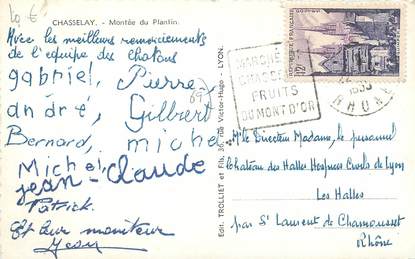 10 €
CHASSELAY. - Montée du Plantin.
Avec les meilleurs remerciements
de l'équipe des chatons
gabriel, Pierre,
andré, Gilbert
Bernard, michel
Michel,
jean-Claude
Patrick.
Et leur moniteur
Edit. TROLLIET et Fils, rue Victor-Hugo - LYON.
RÉPUBLIQUE FRANÇAISE
12F
MARCHÉ
CHASSELAY
FRUITS
DU MONT D'OR
RHONE
Mr le Directeur Madame, le personnel
Château des Halles Hospices Civils de Lyon
Les Halles
par St Laurent de Chamousset
Rhône